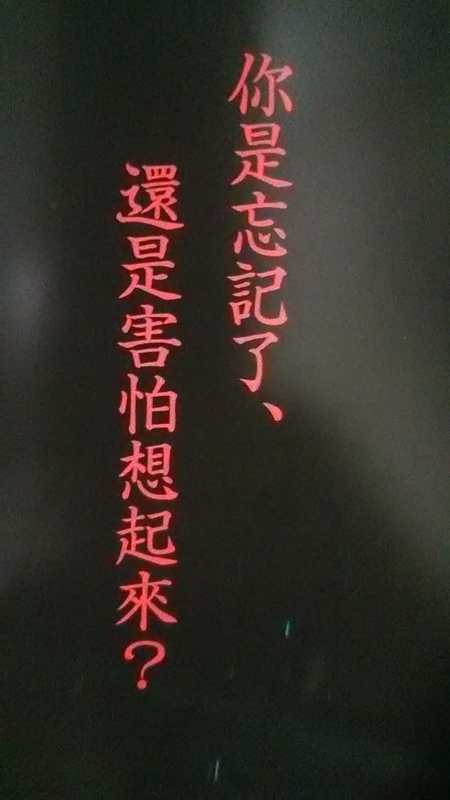 你是忘記了、
還是害怕想起來？